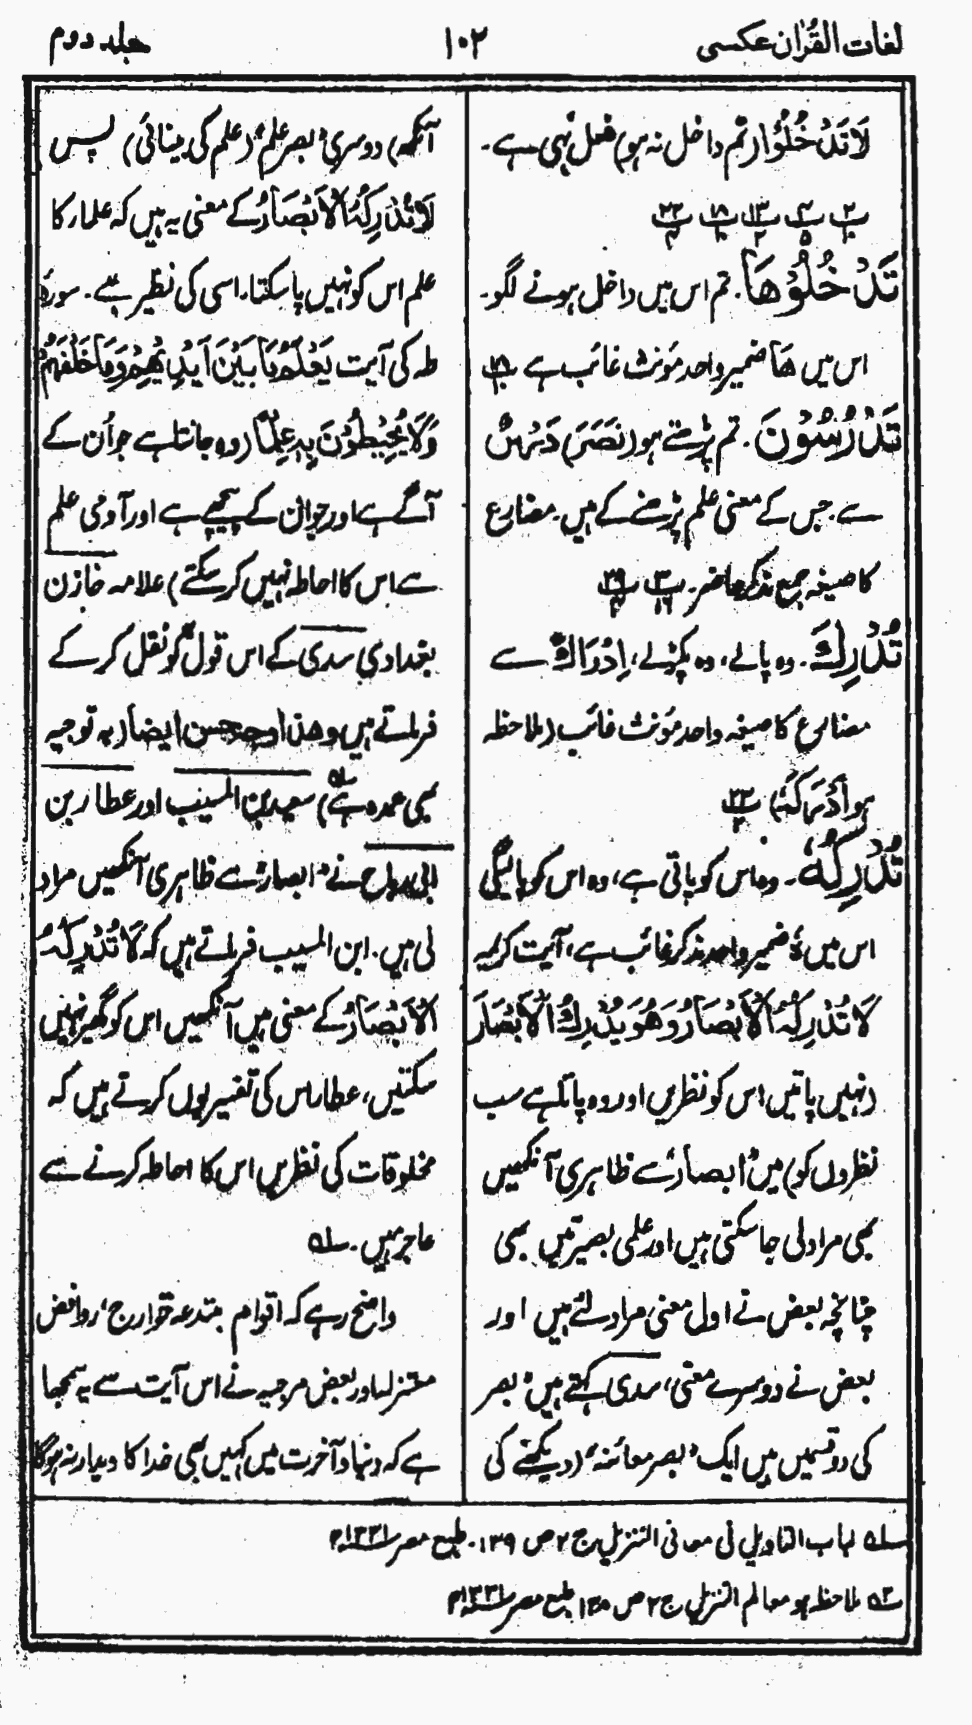 لغات القرآن عکسی
۱۰۲
جلد دوم
لَا تَدْخُلُوْا (تم داخل نہ ہو) فعل نہی ہے۔
تَدْخُلُوْهَا۔ تم اس میں داخل ہونے لگو۔
اس میں ھَا ضمیر واحد مؤنث غائب ہے
تَدْرُسُوْنَ۔ تم پڑھتے ہو (نَصَرَ) دَرْسٌ
سے۔ جس کے معنی علم پڑھنے کے ہیں۔ مضارع
کا صیغہ جمع مذکر حاضر۔
تُدْرِكَ۔ وہ پالے، وہ پکڑلے، اِدْرَاكٌ سے
مضارع کا صیغہ واحد مؤنث غائب (ملاحظہ
ہو اَدْرَكَهُ)
تُدْرِكُهُ۔ وہ اس کو پاتی ہے، وہ اس کو پالیگی
اس میں ہٗ ضمیر واحد مذکر غائب ہے، آیت کریمہ
لَا تُدْرِكُهُ الْاَبْصَارُ وَهُوَ يُدْرِكُ الْاَبْصَارَ
(نہیں پاتیں اس کو نظریں اور وہ پاتا ہے سب
نظروں کو) میں "ابصار" سے ظاہری آنکھیں
بھی مراد لی جاسکتی ہیں اور علمی بصیرتیں بھی
چنانچہ بعض نے اول معنی مراد لئے ہیں اور
بعض نے دوسرے معنی، سدی کہتے ہیں "بصر
کی دو قسمیں ہیں ایک "بصر معائنہ" (دیکھنے کی
آنکھ) دوسری "بصر علم" (علم کی بینائی) پس
لَا تُدْرِكُهُ الْاَبْصَارُ کے معنی یہ ہیں کہ علمار کا
علم اس کو نہیں پا سکتا۔ اسی کی نظیر ہے۔ سورۂ
طہ کی آیت يَعْلَمُ مَا بَيْنَ اَيْدِيْهِمْ وَمَا خَلْفَهُمْ
وَلَا يُحِيْطُوْنَ بِهٖ عِلْمًا (وہ جانتا ہے جو اُن کے
آگے ہے اور جو ان کے پیچھے ہے اور آدمی علم
سے اس کا احاطہ نہیں کر سکتے) علامہ خازن
بغدادی سدی کے اس قول کو نقل کر کے
فرماتے ہیں وھذا وجہ حسن ایضا (یہ توجیہ
بھی عمدہ ہے) سعید بن المسیب اور عطار بن
ابی رباح نے "ابصار" سے ظاہری آنکھیں مراد
لی ہیں۔ ابن المسیب فرماتے ہیں کہ لَا تُدْرِكُهُ
الْاَبْصَارُ کے معنی ہیں آنکھیں اس کو گھیر نہیں
سکتیں، عطار اس کی تفسیر یوں کرتے ہیں کہ
مخلوقات کی نظریں اس کا احاطہ کرنے سے
عاجز ہیں۔ سلہ
واضح رہے کہ اقوام مبتدعہ خوارج، روافض
معتزلہ اور بعض مرجیہ نے اس آیت سے یہ سمجھا
ہے کہ دنیا و آخرت میں کہیں بھی خدا کا دیدار نہ ہوگا
سلہ لباب التاویل فی معانی التنزیل ج ۲ ص ۱۳۹۔ طبع مصر ۱۳۳۱ھ
سلہ ملاحظہ ہو معالم التنزیل ج ۲ ص ۱۳۸ طبع مصر ۱۳۳۱ھ